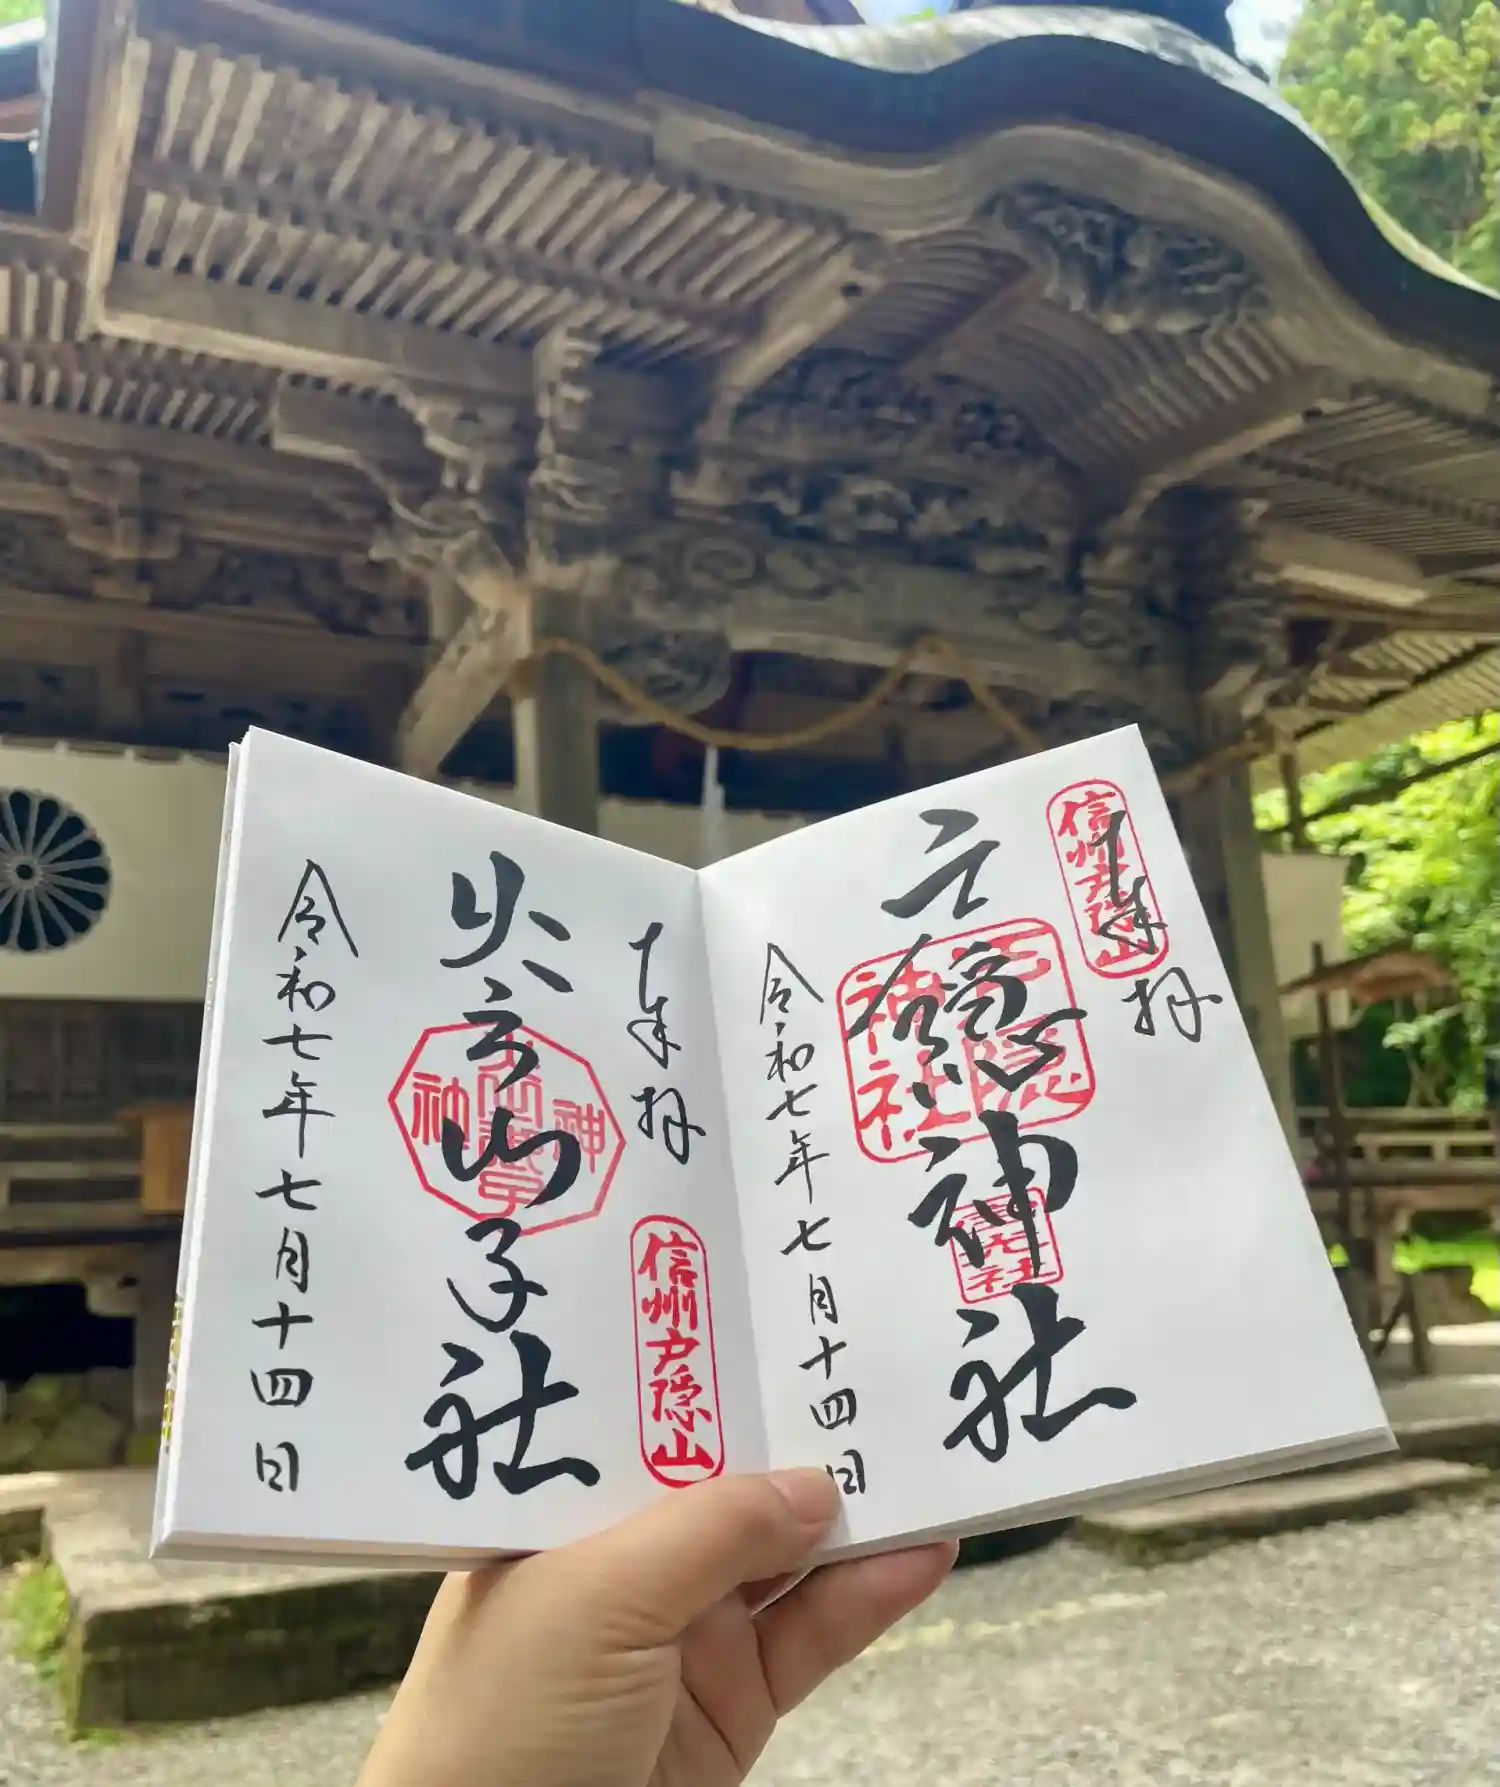 信州戸隠山
奉拝
戸隠神社
戸隠神社
令和七年七月十四日
奉拝
信州戸隠山
火之御子社
令和七年七月十四日